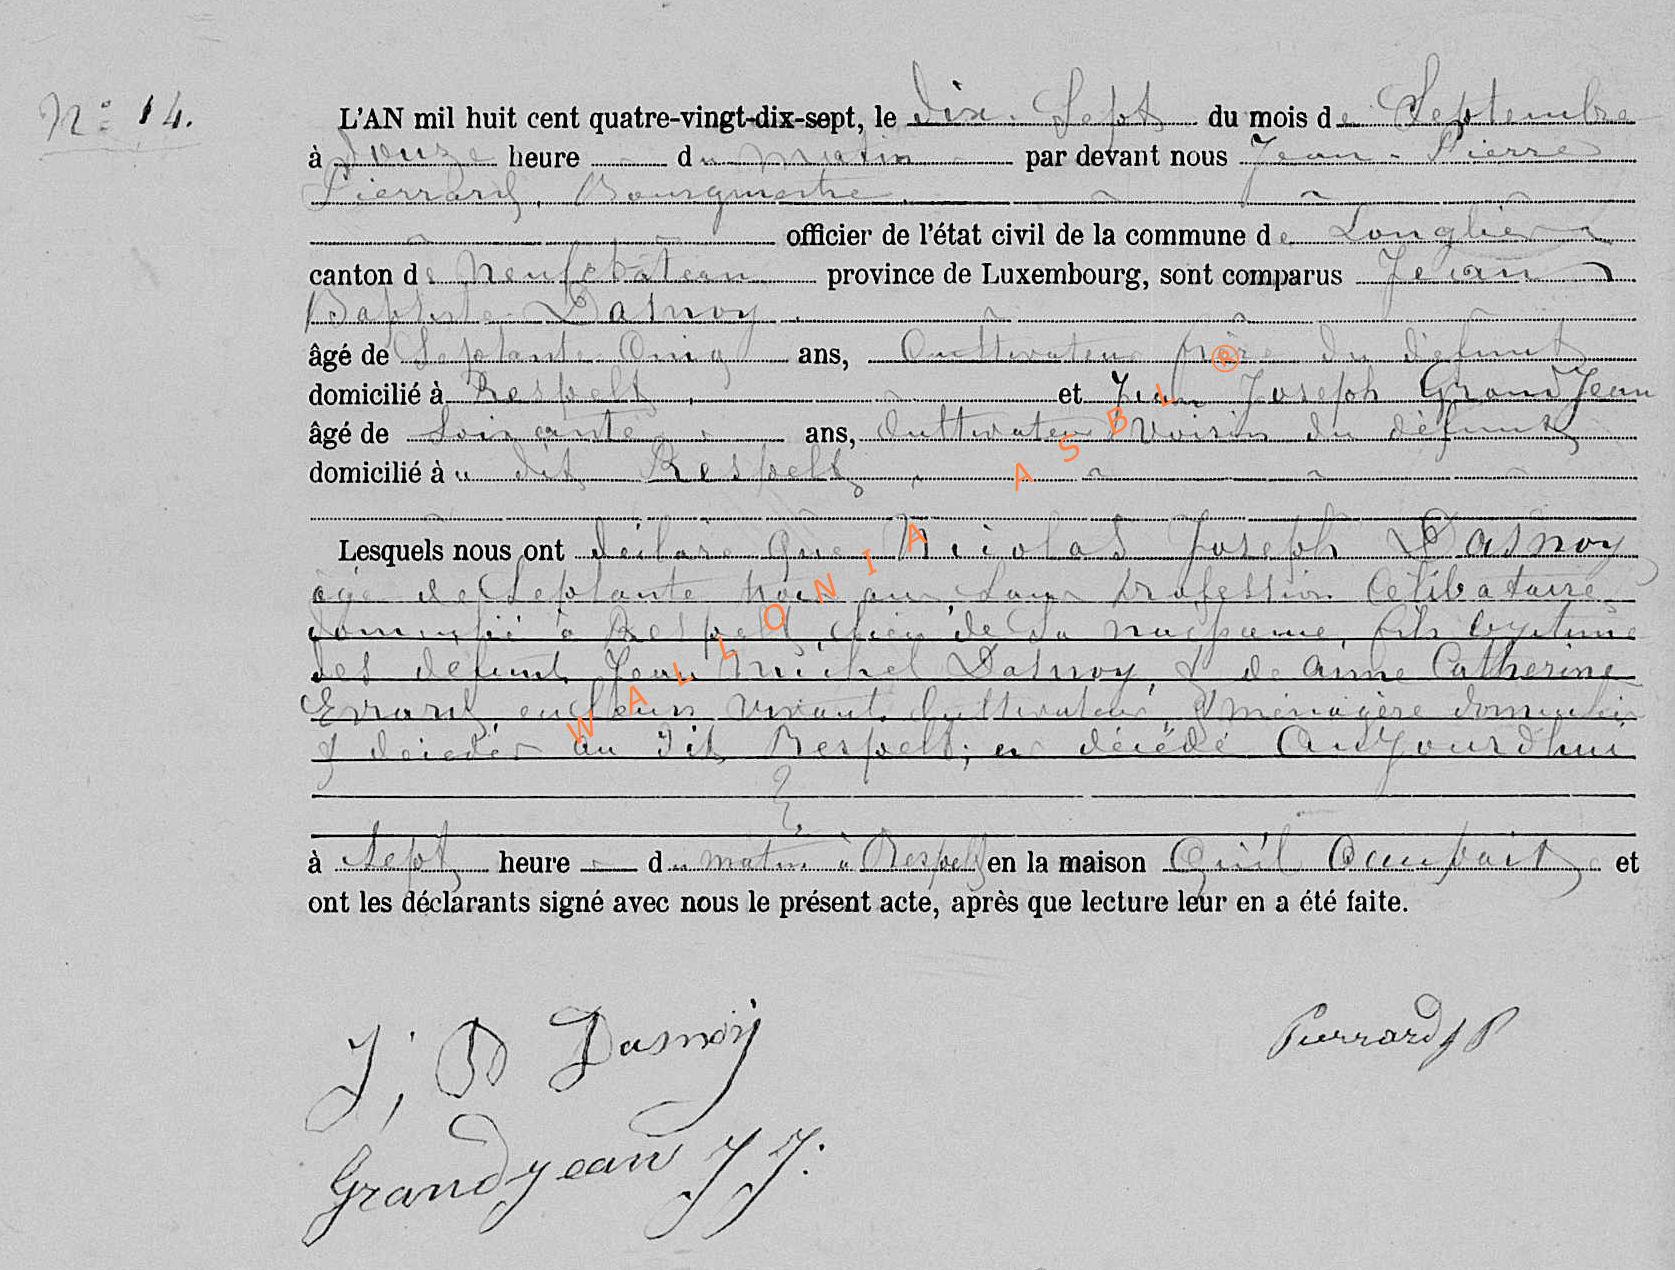 N° 14.
L'AN mil huit cent quatre-vingt-dix-sept, le dix-Sept du mois de Septembre
à onze heure - du matin par devant nous Jean-Pierre
Pierrard, Bourgmestre
officier de l'état civil de la commune de Longlier
canton de Neufchâteau province de Luxembourg, sont comparus Jean
Baptiste Dasnoy
âgé de Septante Cinq ans, Cultivateur frère du défunt
domicilié à Respelt, et Jean Joseph GrandJean
âgé de Soixante ans, Cultivateur Voisin du défunt
domicilié à u dit Respelt,
Lesquels nous ont déclaré que Nicolas Joseph Dasnoy
âgé de Septante ans Sans profession Célibataire
domicilié à Respelt, lieu de Sa naissance, fils légitime
des défunts Jean Michel Dasnoy, & de Anne Catherine
Evrard, en leurs vivant Cultivateur & ménagère domiciliés
& décédés au dit Respelt; est décédé Aujourd'hui
à Sept heure - du matin à Respelt en la maison Qu'il Occupait et
ont les déclarants signé avec nous le présent acte, après que lecture leur en a été faite.
J, B Dasnoy
Pierrard J P
Grandjean J J.
WALLONIA ASBL ®